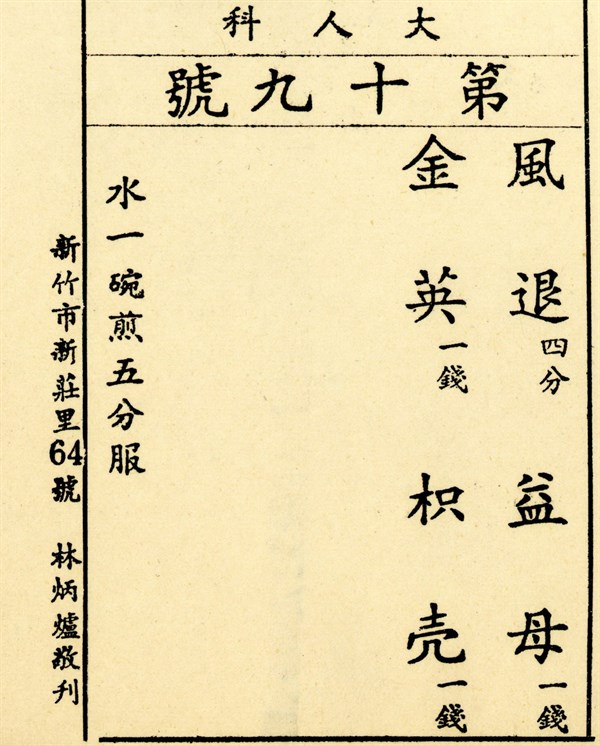 大人科
第十九號
風退四分 益母一錢
金英一錢 枳壳一錢
水一碗煎五分服
新竹市新莊里64號 林炳爐敬刊